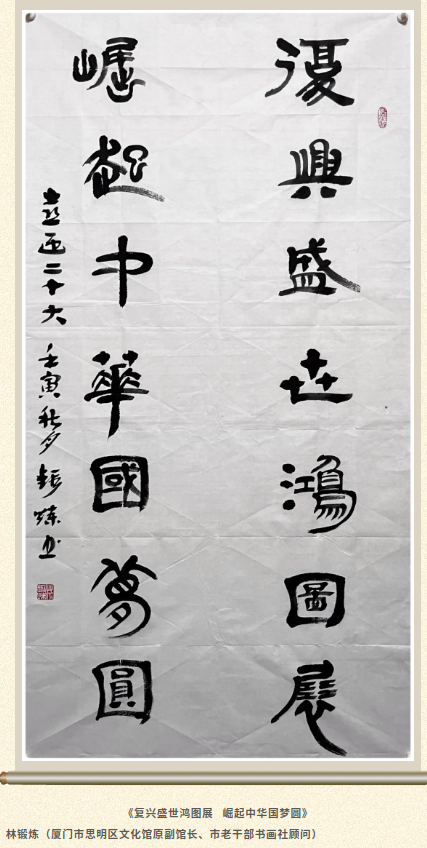 復興盛世鴻圖展
崛起中華國夢圓
喜迎二十大 壬寅秋月 鍛煉书
《复兴盛世鸿图展 崛起中华国梦圆》
林锻炼（厦门市思明区文化馆原副馆长、市老干部书画社顾问）